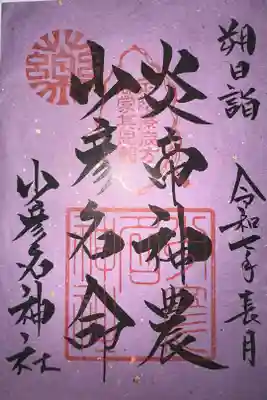 朔日詣
令和七年長月
炎帝神農
少彦名命
少彦名神社